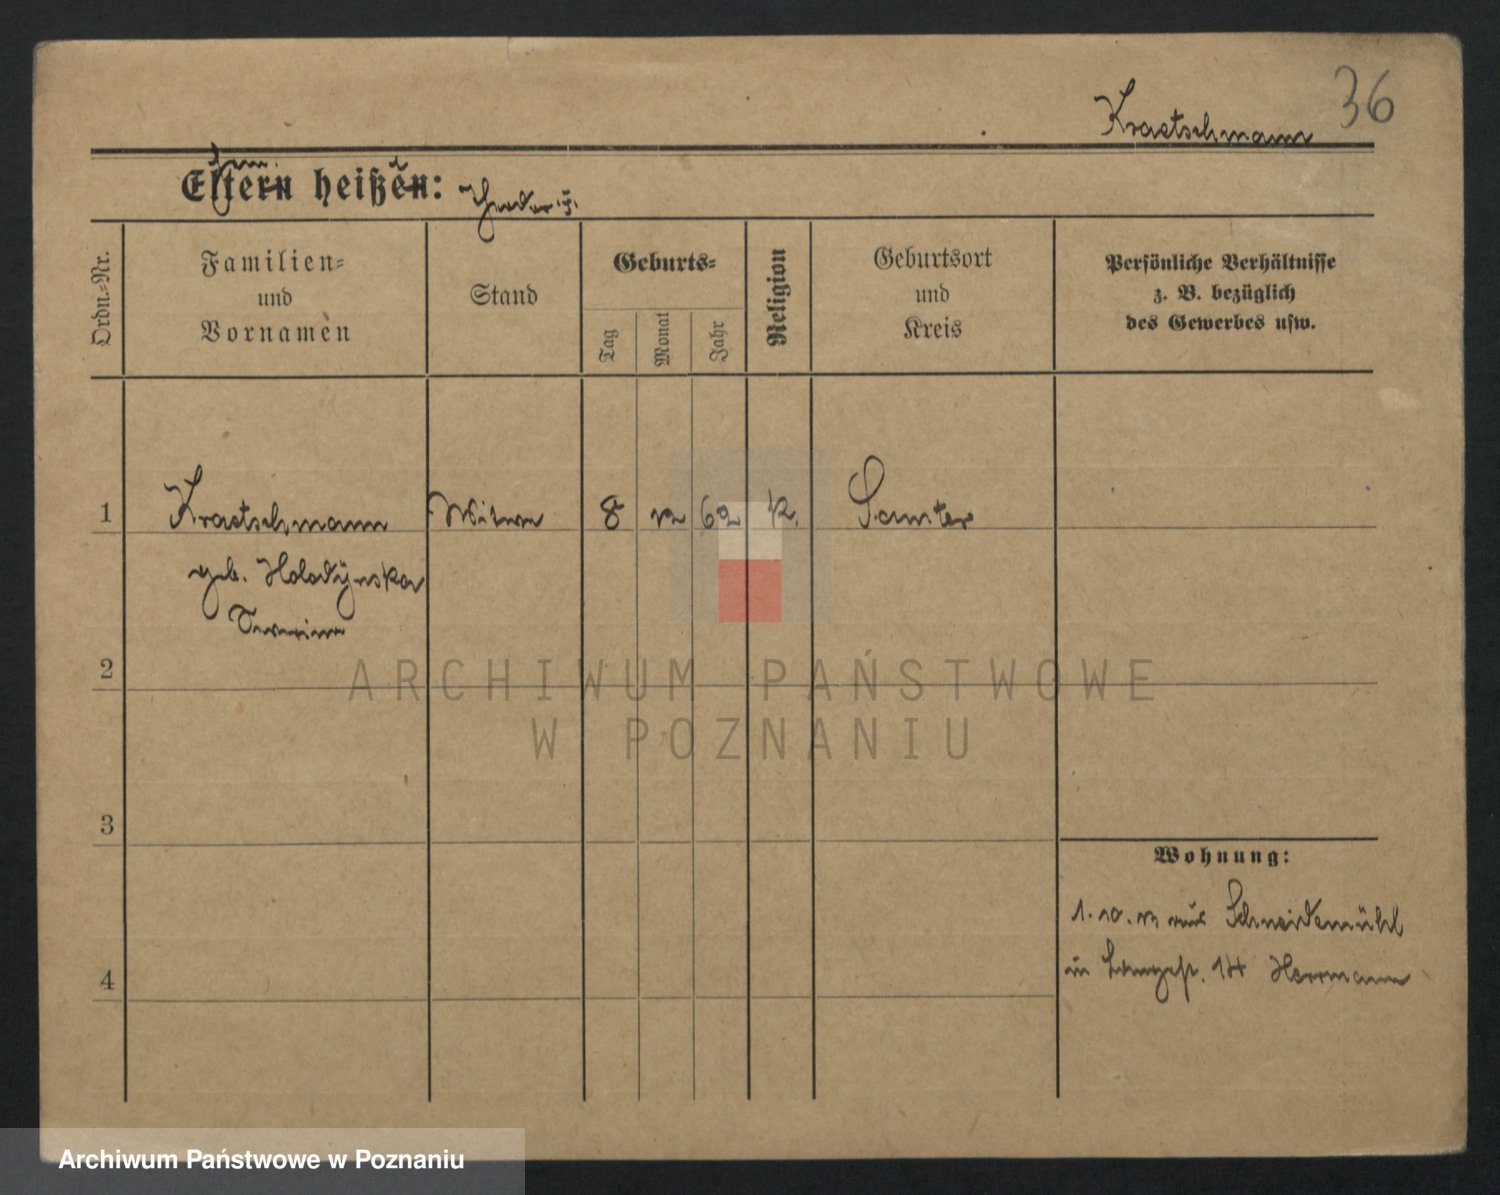 36
Kraetschmann
Eltern heißen:
Ordn.-Nr.
Familien-
und
Vornamen
Stand
Geburts-
Tag
Monat
Jahr
Religion
Geburtsort
und
Kreis
Persönliche Verhältnisse
z. B. bezüglich
des Gewerbes usw.
1 Kraetschmann Witwe 8 12 62 k. Samter
geb. Holodÿnska
2
3
4
Wohnung:
1.10. aus Schneidemühl
in Langestr. 14 Herrmann
ARCHIWUM PAŃSTWOWE
W POZNANIU
Archiwum Państwowe w Poznaniu